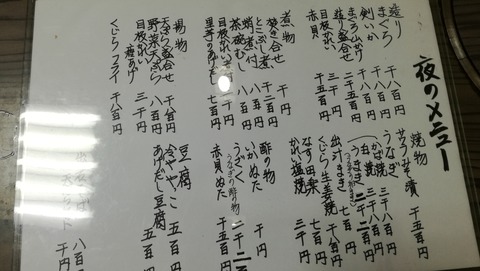 夜のメニュー
造り
まぐろ 千八百円
剣いか 千八百円
まぐろ山かけ 千八百円
造り盛合せ 二千五百円
目板がれい 三千円
赤貝 千五百円
煮物
焚き合せ 千円
とこぶし煮 千二百円
蛸煮付 千円
茶碗むし 八百円
目板がれい 三千円
里芋のあげだし 七百円
揚物
天ぷら盛合せ 千八百円
野菜天ぷら 八百円
目板がれい唐あげ 三千円
くじらフライ 千八百円
焼物
サワラみそ漬 千五百円
うなぎ
(かば焼 三千八百円
うまき 二千二百円
(うなぎ入り)
出汁まき 七百円
くじら生姜焼 千八百円
なす田楽 七百円
かれい塩焼 三千円
酢の物
いかぬた 千円
うざく 二千二百円
(うなぎの酢の物)
赤貝ぬた 千五百円
豆腐
冷ややっこ 五百円
あげだし豆腐 五百円
八百円
千円